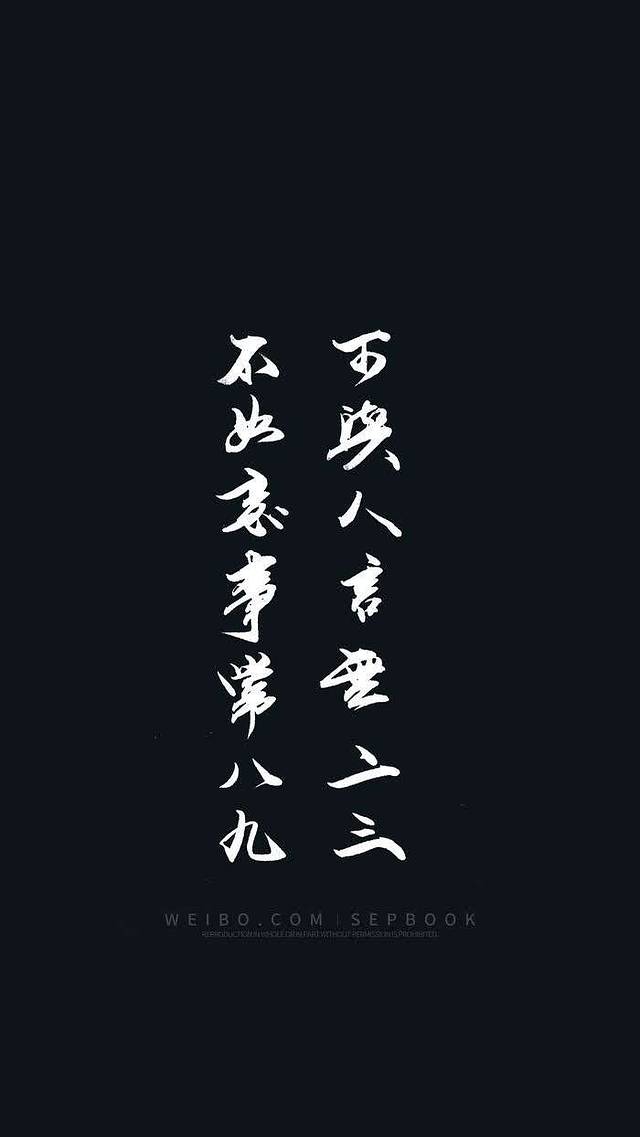 不如意事常八九
可與人言無二三
WEIBO.COM | SEPBOOK
REPRODUCTION IN WHOLE OR IN PART WITHOUT PERMISSION IS PROHIBITED.